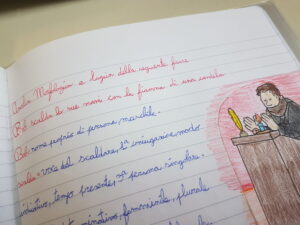 Analisi Morfologica e logica della seguente frase
Bob scalda le sue mani con la fiamma di una candela
Bob: nome proprio di persona, maschile.
scalda = voce del v. scaldare, 1ª coniugazione, modo
indicativo, tempo presente, 3ª persona singolare.
femminile, plurale